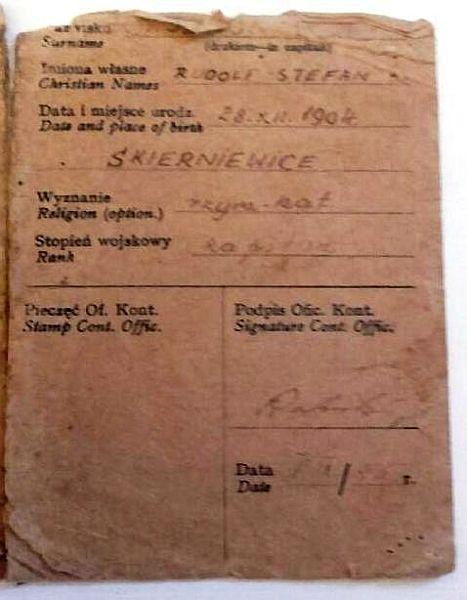 Surname (drukiem—in capitals)
Imiona własne RUDOLF STEFAN
Christian Names
Data i miejsce urodz. 28.XII.1904
Date and place of birth
SKIERNIEWICE
Wyznanie rzym-kat
Religion (option.)
Stopień wojskowy kapitan
Rank
Pieczęć Of. Kont. Podpis Ofic. Kont.
Stamp Cont. Offic. Signature Cont. Offic.
Data r.
Date